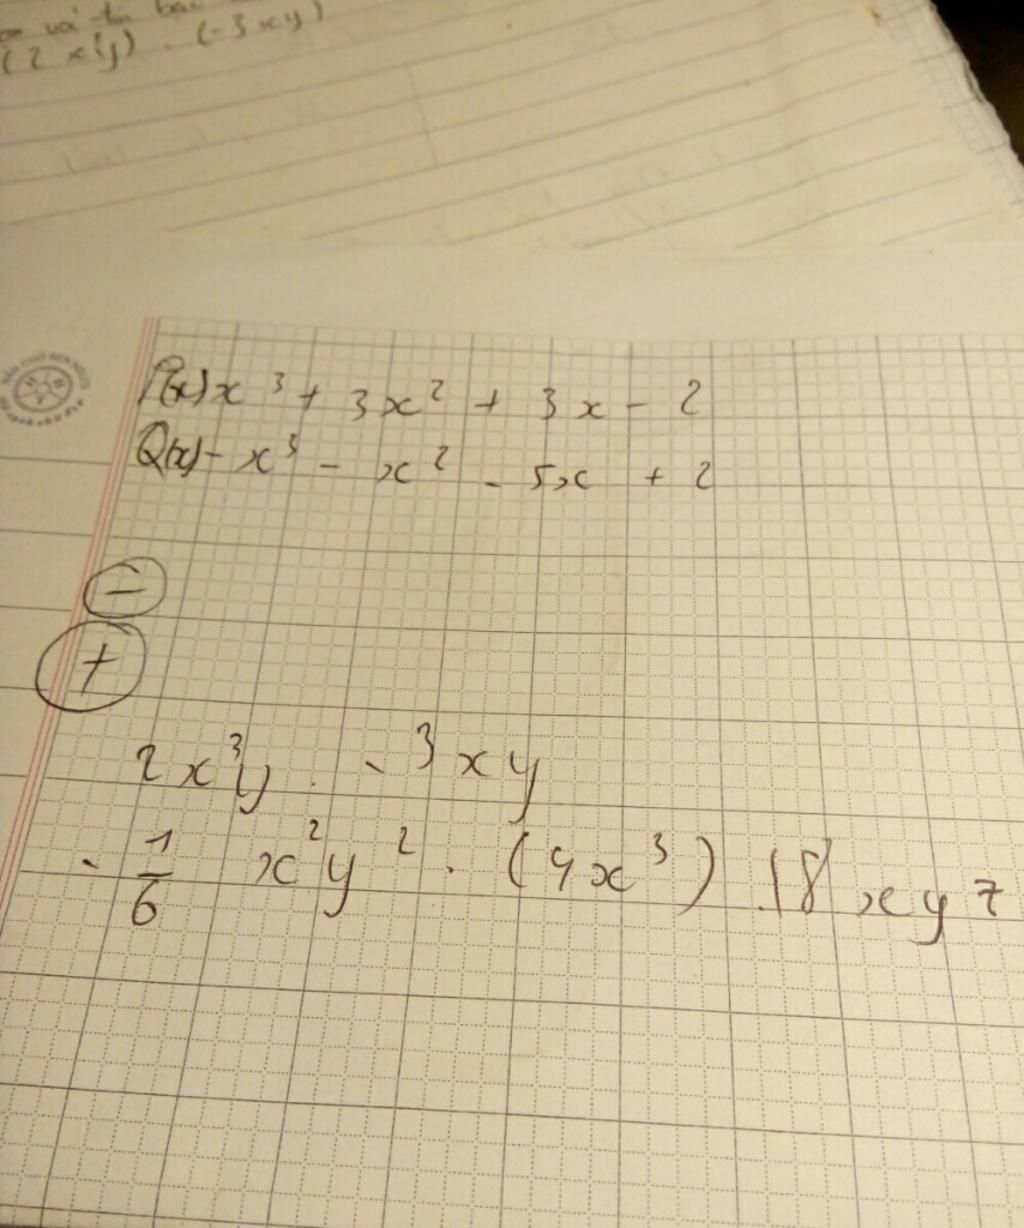 (2x³y) . (-3xy)
P(x) x³ + 3x² + 3x - 2
Q(x) - x³ - x² - 5x + 2
-
+
2x³y . - 3xy
- 1/6 x²y² . (4x³) . 18xyz